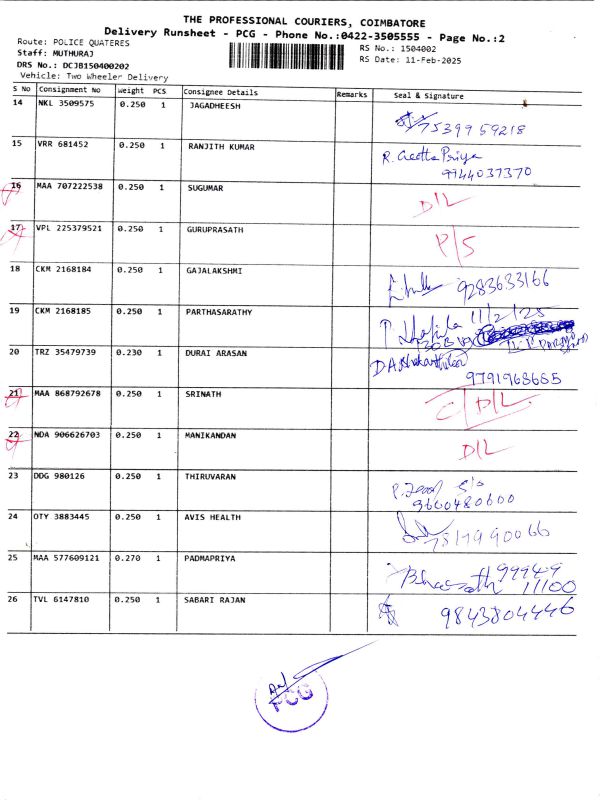 THE PROFESSIONAL COURIERS, COIMBATORE
Delivery Runsheet - PCG - Phone No.:0422-3505555 - Page No.:2
Route: POLICE QUATERES
Staff: MUTHURAJ
DRS No.: DCJB150400202
Vehicle: Two Wheeler Delivery
RS No.: 1504002
RS Date: 11-Feb-2025
S No Consignment No Weight PCS Consignee Details Remarks Seal & Signature
14 NKL 3509575 0.250 1 JAGADHEESH
7539959218
15 VRR 681452 0.250 1 RANJITH KUMAR R. Geetha Priya
9944037370
16 MAA 707222538 0.250 1 SUGUMAR D/L
17 VPL 225379521 0.250 1 GURUPRASATH P/S
18 CKM 2168184 0.250 1 GAJALAKSHMI 9283633166
19 CKM 2168185 0.250 1 PARTHASARATHY 11/2/25
20 TRZ 35479739 0.230 1 DURAI ARASAN
9791968685
21 MAA 868792678 0.250 1 SRINATH C/D/L
22 NDA 906626703 0.250 1 MANIKANDAN D/L
23 DDG 980126 0.250 1 THIRUVARAN S/o
9600480600
24 OTY 3883445 0.250 1 AVIS HEALTH 7817990066
25 MAA 577609121 0.270 1 PADMAPRIYA 99949
Bharath 11100
26 TVL 6147810 0.250 1 SABARI RAJAN 9843804446
PCG